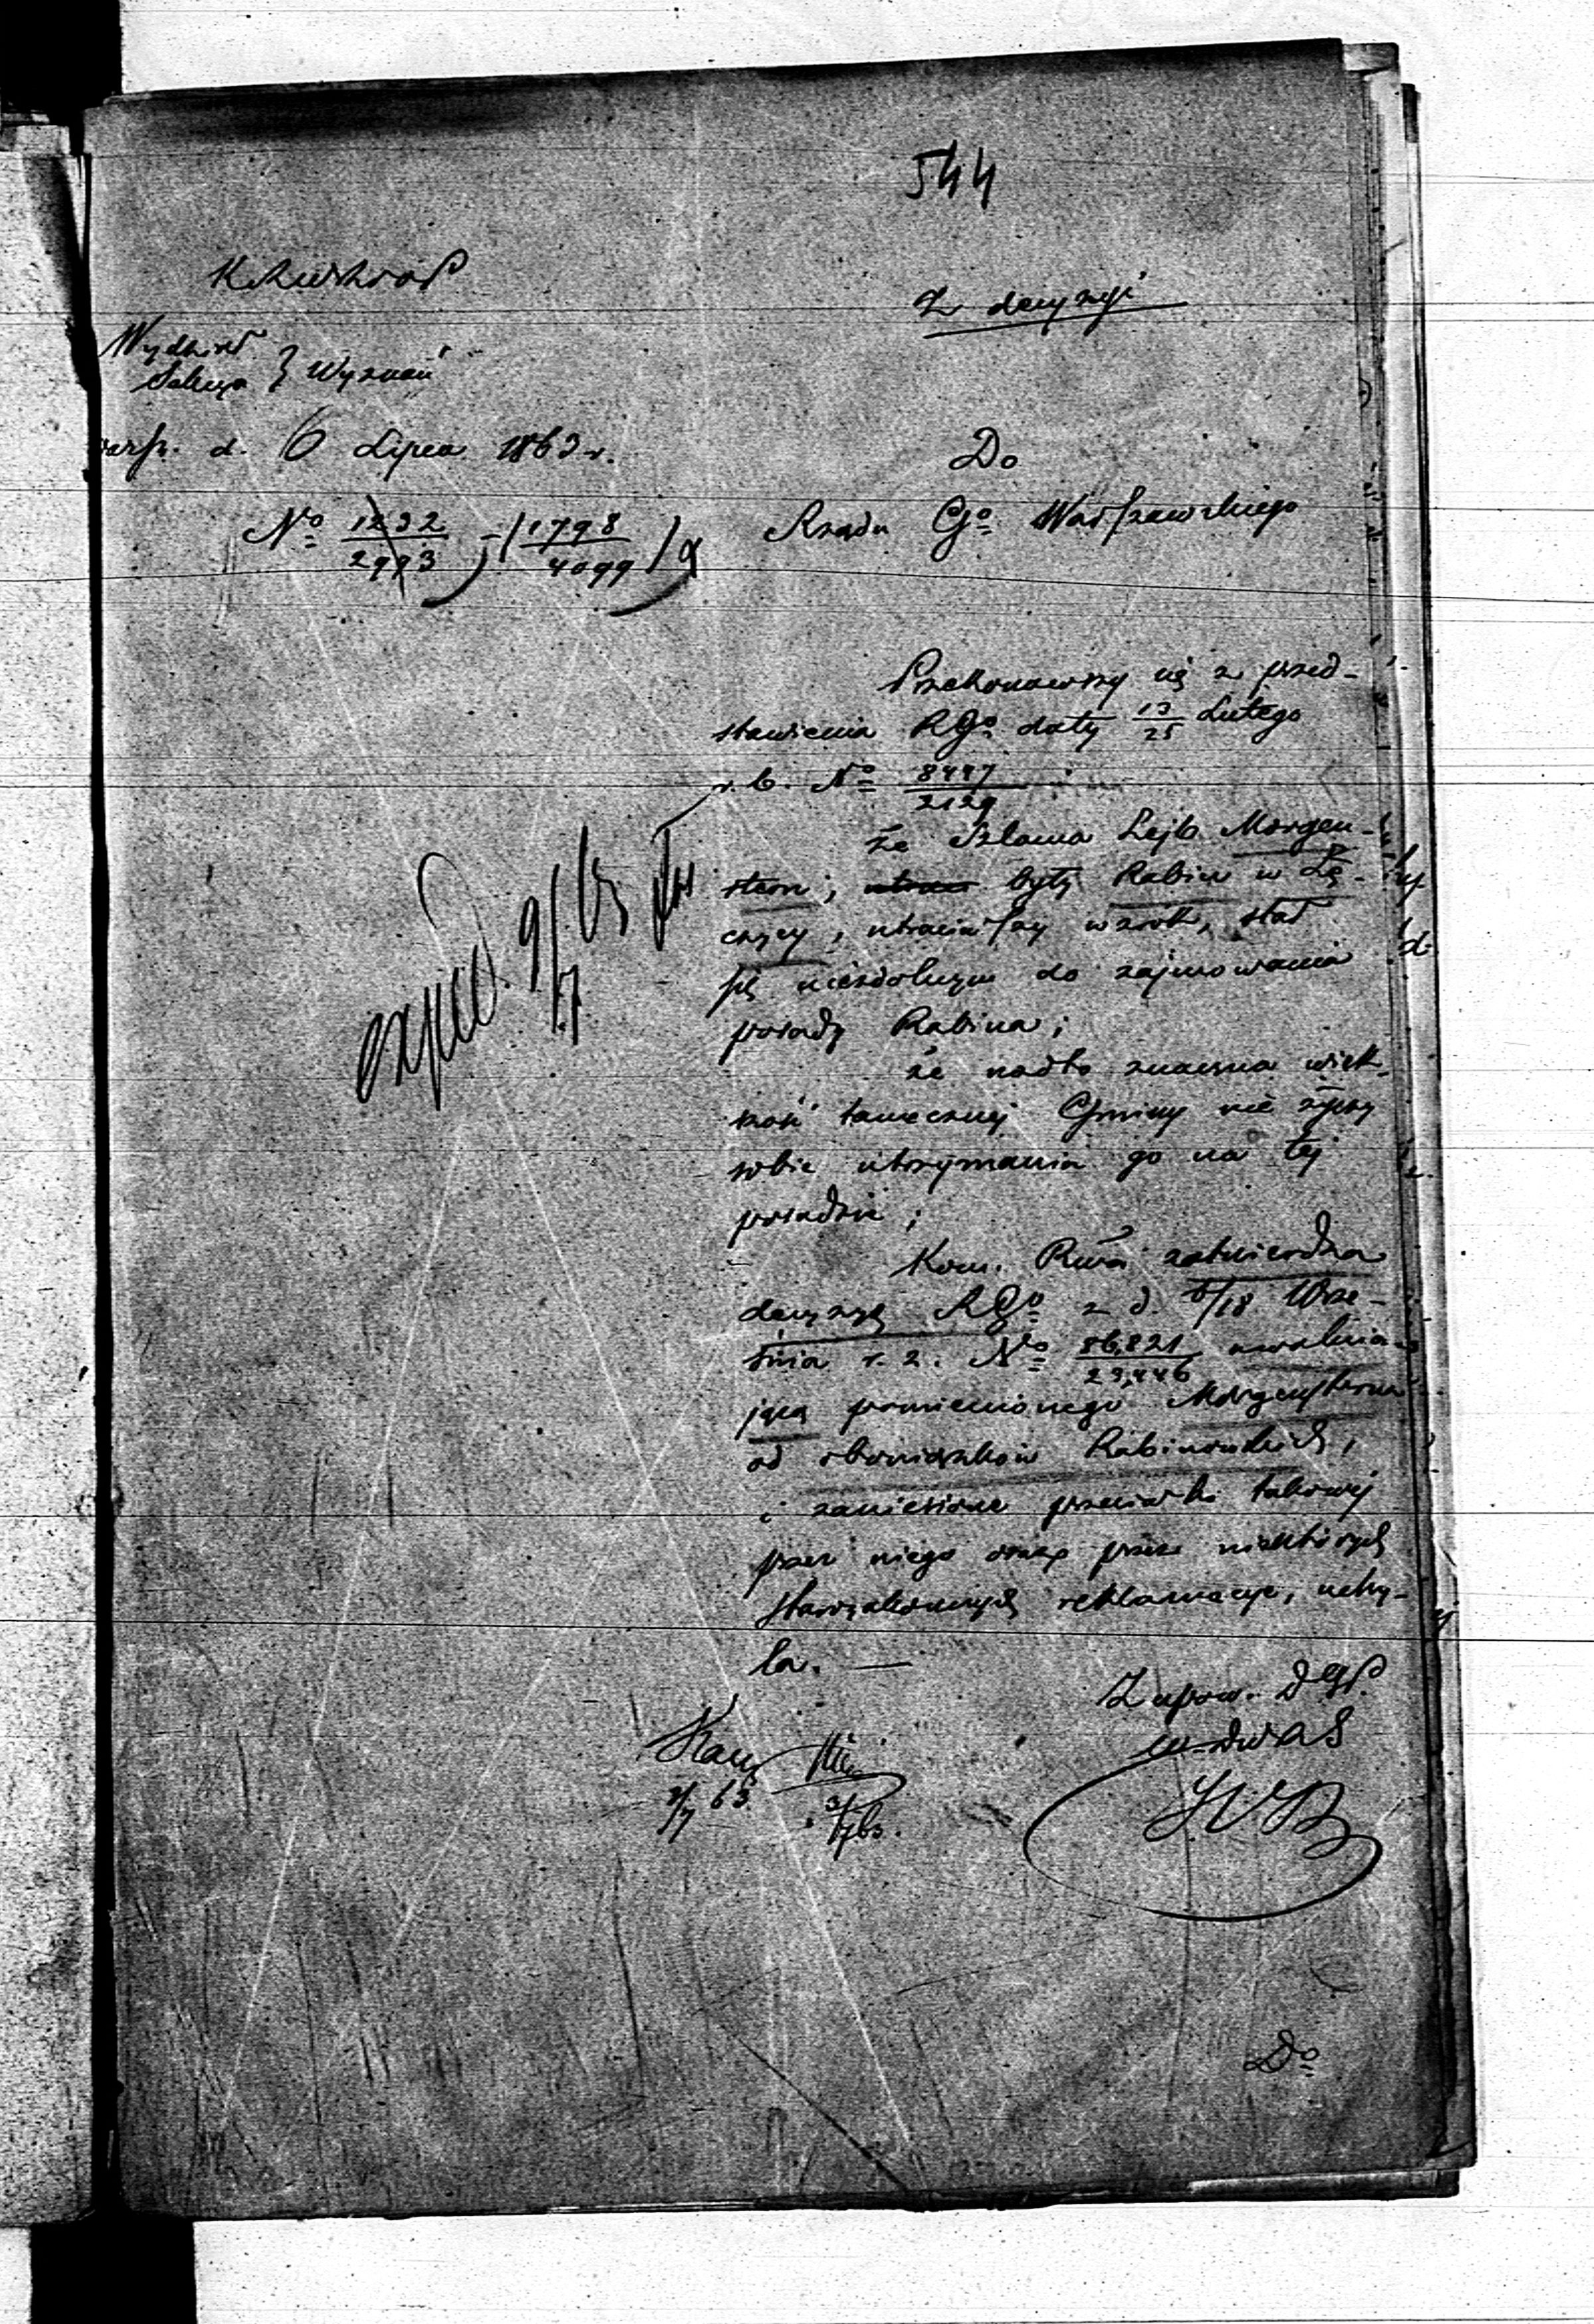 544
Z decyzji
Wydział
Sekcya } Wyznań
d. 6 Lipca 1863 r.
Nº 1232/2993 - (1798/4099)
Do
Rządu Gº Warszawskiego
Przekonawszy się z przed-
stawienia RGº daty 13/25 Lutego
r. b. Nº 8497/2129
że Szlama Lejb Morgen-
stern, były Rabin w Łę-
czycy, utraciwszy wzrok, stał
się niezdolnym do zajmowania
posady Rabina;
że nadto znaczna więk-
szość tamecznej Gminy nie życzy
sobie utrzymania go na tej
posadzie;
Kom. Rwa zatwierdza
decyzyę RGº z d. 6/18 Wrze-
śnia r. z. Nº 86,821/23,446 uwalnia-
jącą pomienionego Morgensterna
od obowiązków Rabinowskich,
i zaniesione przeciwko takowej
przez niego oraz przez niektórych
starozakonnych reklamacye, uchy-
la. —
exped. 9/7 63
Z upow. DGł
3/7 63
3/7 63.
Do